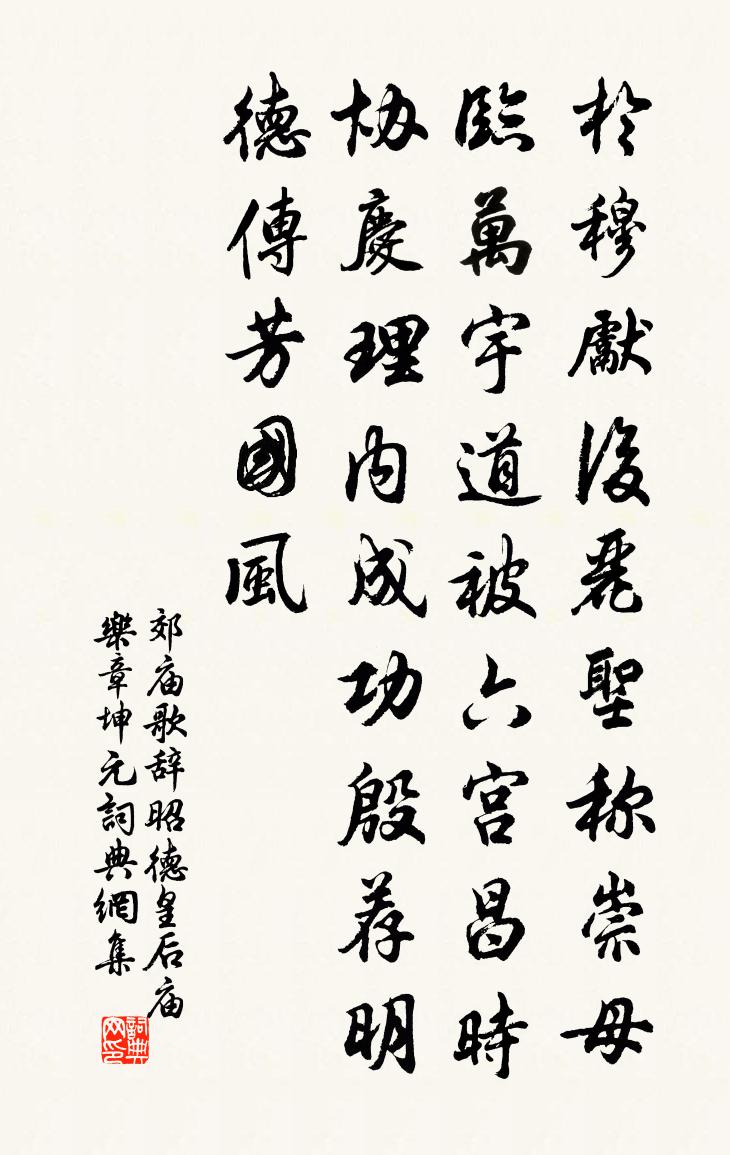 於穆獻後麗聖称崇母
臨萬宇道被六宫昌時
協慶理内成功殷荐明
德傳芳國風
郊庙歌辞昭德皇后庙
樂章坤元詞典網集
詞典
网印